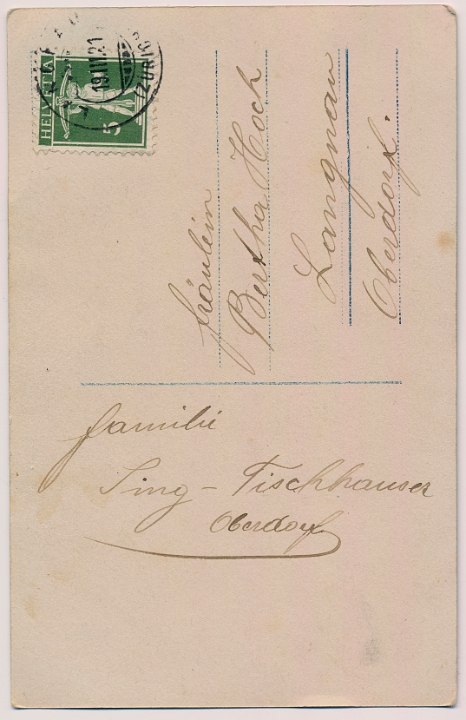 HELVETIA
5
19.III.21
ZÜRICH
Fräulein
Bertha Hoch
Langnau
Oberdorf.
Familie
Sing - Tischhauser
Oberdorf